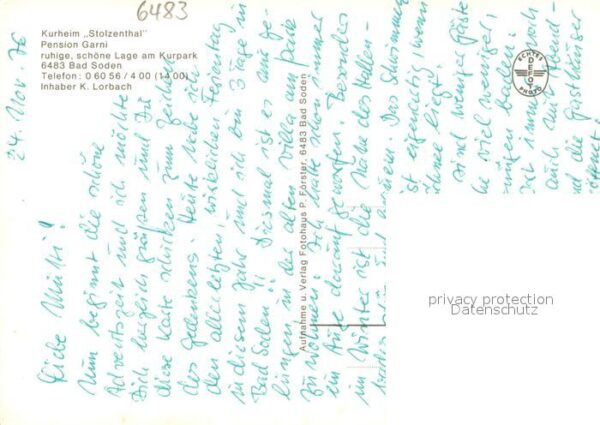 6483
Kurheim „Stolzenthal"
Pension Garni
ruhige, schöne Lage am Kurpark
6483 Bad Soden
Telefon: 0 60 56 / 4 00 (14 00)
Inhaber K. Lorbach
ECHTES
DEFOT
PHOTO
Aufnahme u. Verlag Fotohaus P. Förster, 6483 Bad Soden
24. Nov. 76
Liebe Mutti!
Nun beginnt die schöne
Adventszeit und ich möchte
Dich herzlich grüßen und Dir
diese Karte schicken zum Zeichen
des Gedenkens. Heute habe ich
den allerletzten, wirklichen Ferientag
in diesem Jahr und ich bin 3 Tage in
Bad Soden! Diesmal ist es
in der alten Villa am Park
zu wohnen. Ich hatte schon immer
ein Auge darauf geworfen. Besonders
im Winter ist die Nähe des Hallen-
Das Schwimmen
ist eigenartig, wenn
liegt.
sind wenig Gäste
viel weniger,
baden.
ist immer noch
auch
und die Gasthäuser
privacy protection
Datenschutz